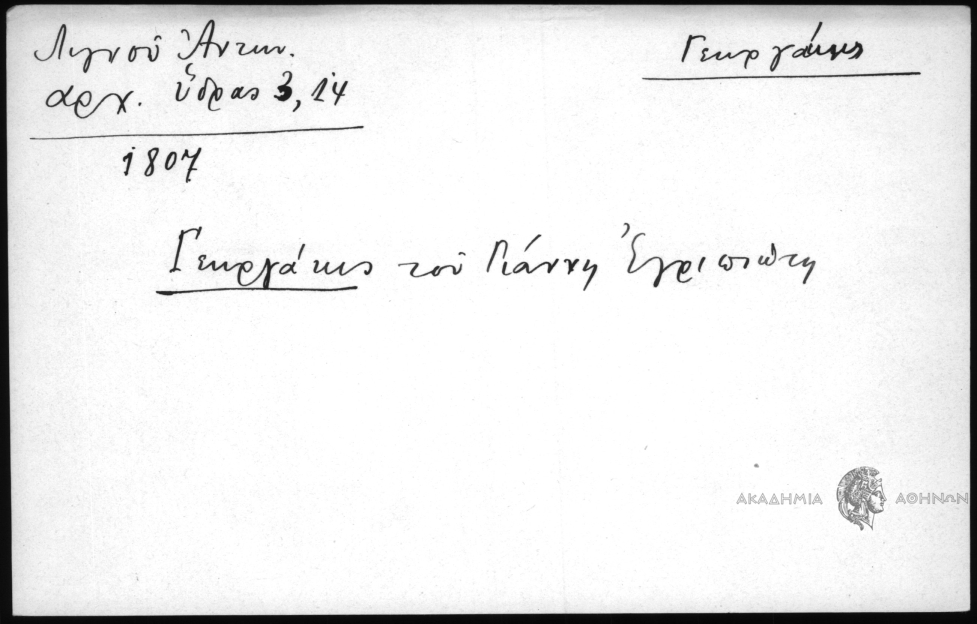 Λιγνοῦ Ἀντων.
ἀρχ. Ὕδρας 3, 14
1807
Γεωργάκης
Γεωργάκης τοῦ Γιάννη Ἐγριπιώτη
ΑΚΑΔΗΜΙΑ ΑΘΗΝΩΝ